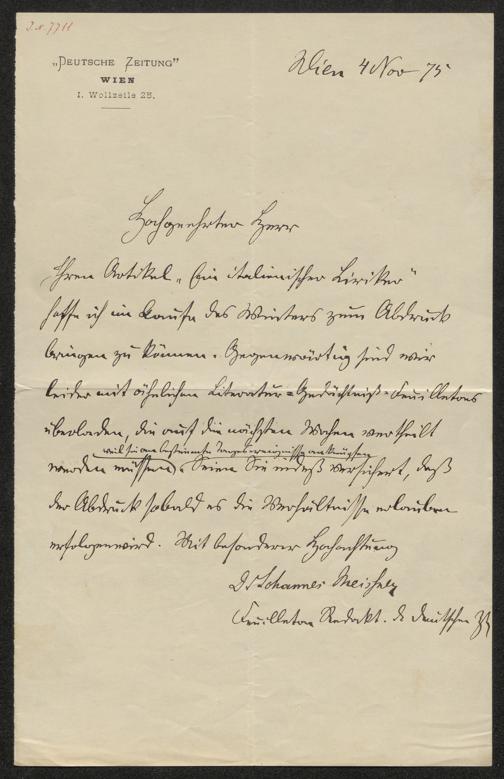 J.N. 7711
„DEUTSCHE ZEITUNG"
WIEN
I. Wollzeile 25.
Wien 4 Nov 75
Hochgeehrter Herr
Ihren Artikel „Ein italienischer Liriker"
hoffe ich im Laufe des Winters zum Abdruck
bringen zu können. Gegenwärtig sind wir
leider mit ähnlichen Literatur=Gedächtniß=Feuilletons
überladen, die auf die nächsten Wochen vertheilt
weil sie an bestimmte Tagesereignisse anknüpfen
werden müssen. Seien Sie indeß versichert, daß
der Abdruck sobald es die Verhältnisse erlauben
erfolgen wird. Mit besonderer Hochachtung
Dr Johannes
Feuilleton Redakt. d. deutschen Ztg